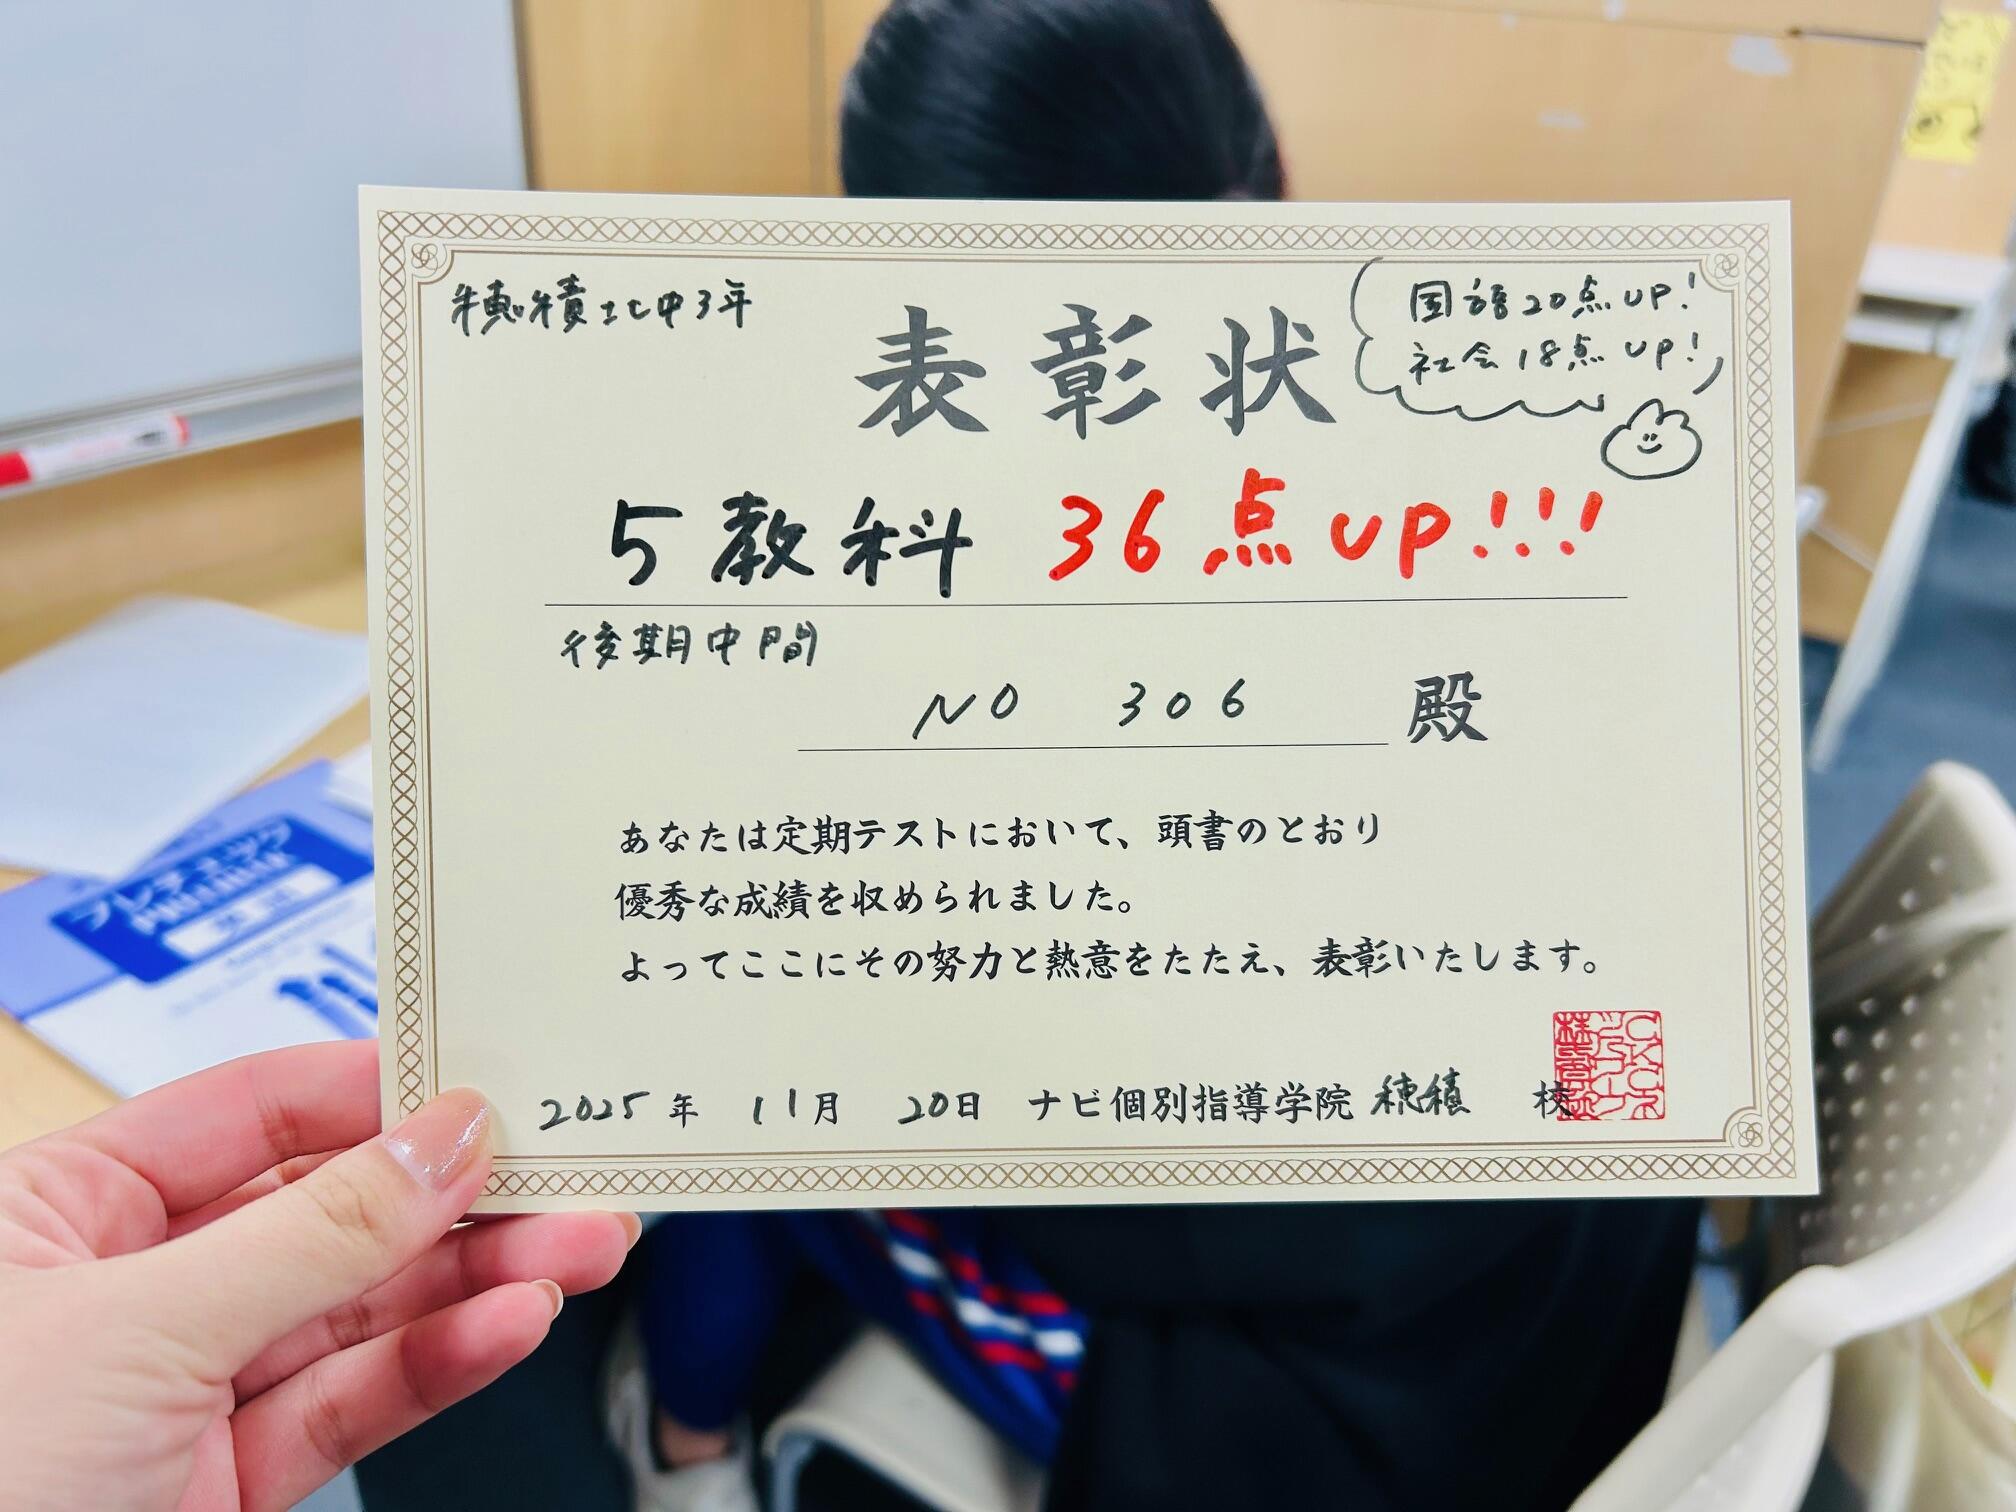 穂積北中3年
表彰状
国語20点UP!
社会18点UP!
5教科 36点UP!!!
後期中間
NO 306 殿
あなたは定期テストにおいて、頭書のとおり
優秀な成績を収められました。
よってここにその努力と熱意をたたえ、表彰いたします。
2025年 11月 20日 ナビ個別指導学院 穂積 校
プレチェック